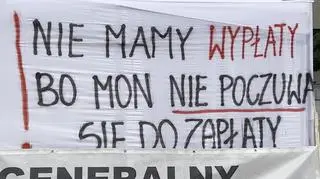 NIE MAMY WYPŁATY
BO MON NIE POCZUWA
SIĘ DO ZAPŁATY
GENERALNY